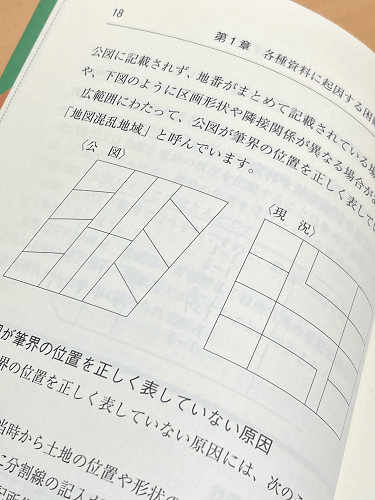 18
第1章 各種資料に起因する困
公図に記載されず、地番がまとめて記載されている場
や、下図のように区画形状や隣接関係が異なる場合が
広範囲にわたって、公図が筆界の位置を正しく表してい
「地図混乱地域」と呼んでいます。
〈公 図〉
〈現 況〉
が筆界の位置を正しく表していない原因
界の位置を正しく表していない原因には、次の
当時から土地の位置や形状の
に分割線の記入が